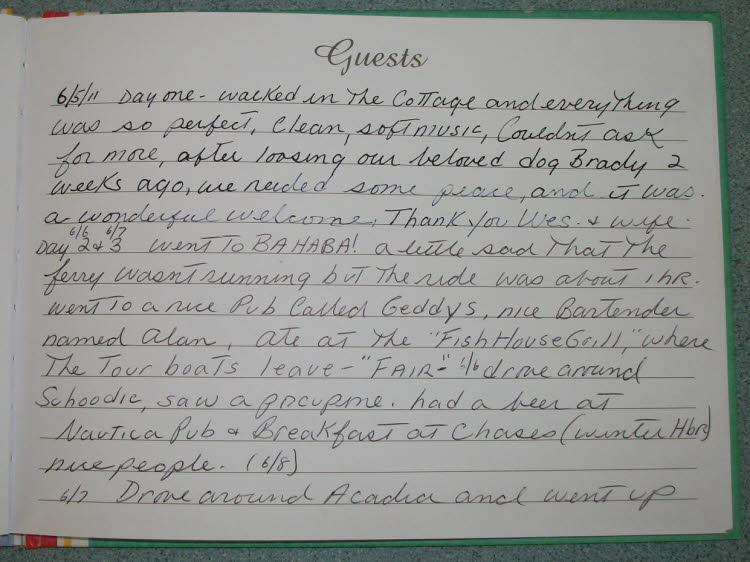 Guests
6/5/11 Day one - walked in The Cottage and everything
was so perfect, Clean, soft music, Couldnt ask
for more, after loosing our beloved dog Brady 2
weeks ago, we needed some peace, and it was.
a wonderful welcome, Thank you Wes. & wife.
6/6 6/7
Day 2 & 3 went To BAHABA! a little sad That The
ferry wasnt running but The ride was about 1 hR.
went To a nice Pub Called Geddys, nice Bartender
named Alan, ate at The "Fish House Grill," where
The Tour boats leave - "FAIR-" 6/6 drove around
Schoodic, saw a porcupine. had a beer at
Nautica Pub & Breakfast at Chases (winter Hbr)
nice people. (6/8)
6/7 Drove around Acadia and went up